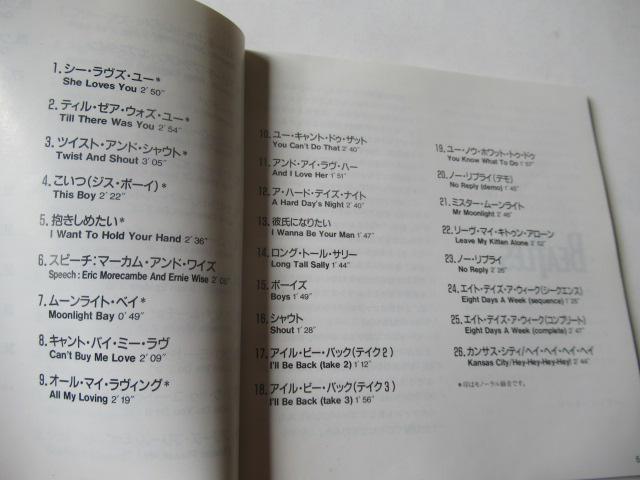 1. シー・ラヴズ・ユー*
She Loves You 2´50˝
2. ティル・ゼア・ウォズ・ユー*
Till There Was You 2´54˝
3. ツイスト・アンド・シャウト*
Twist And Shout 3´05˝
4. こいつ(ジス・ボーイ)*
This Boy 2´22˝
5. 抱きしめたい*
I Want To Hold Your Hand 2´36˝
6. スピーチ:マーカム・アンド・ワイズ
Speech : Eric Morecambe And Ernie Wise
7. ムーンライト・ベイ*
Moonlight Bay 0´49˝
8. キャント・バイ・ミー・ラヴ
Can't Buy Me Love 2´09˝
9. オール・マイ・ラヴィング*
All My Loving 2´19˝
10. ユー・キャント・ドゥ・ザット
You Can't Do That 2´40˝
11. アンド・アイ・ラヴ・ハー
And I Love Her 1´51˝
12. ア・ハード・デイズ・ナイト
A Hard Day's Night 2´40˝
13. 彼氏になりたい
I Wanna Be Your Man 1´47˝
14. ロング・トール・サリー
Long Tall Sally 1´44˝
15. ボーイズ
Boys 1´49˝
16. シャウト
Shout 1´28˝
17. アイル・ビー・バック(テイク2)
I'll Be Back (take 2) 1´12˝
18. アイル・ビー・バック(テイク3)
I'll Be Back (take 3) 1´56˝
19. ユー・ノウ・ホワット・トゥ・ドゥ
You Know What To Do 1´57˝
20. ノー・リプライ(デモ)
No Reply (demo) 1´45˝
21. ミスター・ムーンライト
Mr Moonlight 2´46˝
22. リーヴ・マイ・キトゥン・アローン
Leave My Kitten Alone 2´52˝
23. ノー・リプライ
No Reply 2´28˝
24. エイト・デイズ・ア・ウィーク(シークエンス)
Eight Days A Week (sequence) 1´25˝
25. エイト・デイズ・ア・ウィーク(コンプリート)
Eight Days A Week (complete) 2´47˝
26. カンサス・シティ/ヘイ・ヘイ・ヘイ・ヘイ
Kansas City/Hey-Hey-Hey-Hey! 2´44˝
*印はモノーラル録音です。
BEATLES